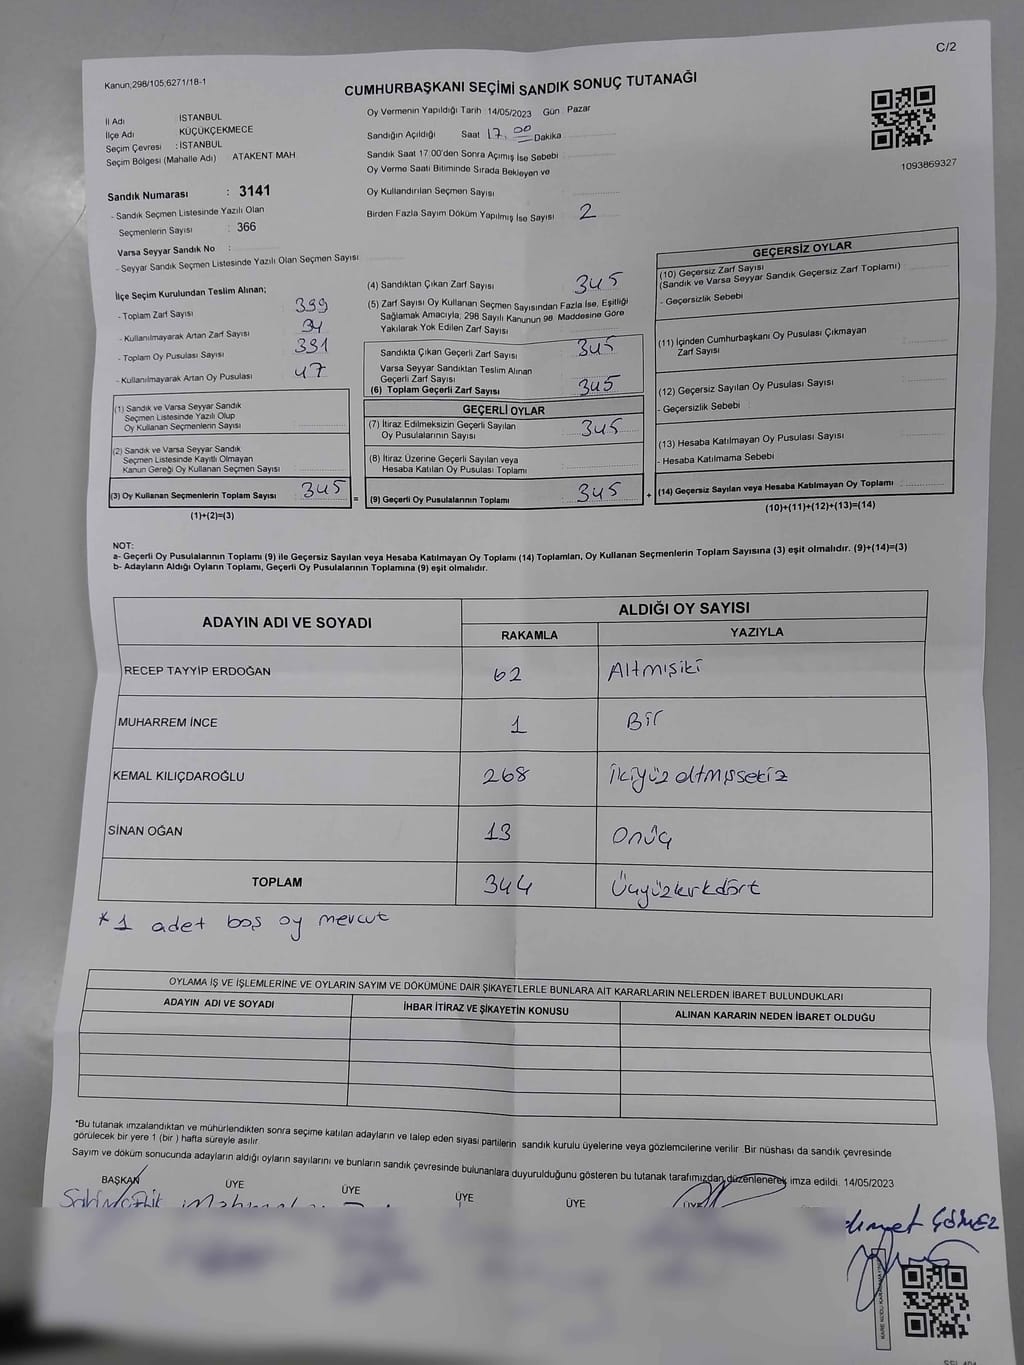 C/2
Kanun;298/105;6271/18-1
CUMHURBAŞKANI SEÇİMİ SANDIK SONUÇ TUTANAĞI
İl Adı : İSTANBUL
İlçe Adı : KÜÇÜKÇEKMECE
Seçim Çevresi : İSTANBUL
Seçim Bölgesi (Mahalle Adı) ATAKENT MAH
Oy Vermenin Yapıldığı Tarih 14/05/2023 Gün : Pazar
Sandığın Açıldığı Saat 17.00 Dakika
Sandık Saat 17:00'den Sonra Açımış İse Sebebi
Oy Verme Saati Bitiminde Sırada Bekleyen ve
Oy Kullandırılan Seçmen Sayısı
Birden Fazla Sayım Döküm Yapılmış İse Sayısı 2
1093869327
Sandık Numarası : 3141
- Sandık Seçmen Listesinde Yazılı Olan
Seçmenlerin Sayısı : 366
Varsa Seyyar Sandık No :
- Seyyar Sandık Seçmen Listesinde Yazılı Olan Seçmen Sayısı
İlçe Seçim Kurulundan Teslim Alınan;
- Toplam Zarf Sayısı 399
- Kullanılmayarak Artan Zarf Sayısı 34
- Toplam Oy Pusulası Sayısı 391
- Kullanılmayarak Artan Oy Pusulası 47
(1) Sandık ve Varsa Seyyar Sandık
Seçmen Listesinde Yazılı Olup
Oy Kullanan Seçmenlerin Sayısı
(2) Sandık ve Varsa Seyyar Sandık
Seçmen Listesinde Kayıtlı Olmayan
Kanun Gereği Oy Kullanan Seçmen Sayısı
(3) Oy Kullanan Seçmenlerin Toplam Sayısı 345
(1)+(2)=(3)
=
(4) Sandıktan Çıkan Zarf Sayısı 345
(5) Zarf Sayısı Oy Kullanan Seçmen Sayısından Fazla İse, Eşitliği
Sağlamak Amacıyla, 298 Sayılı Kanunun 98. Maddesine Göre
Yakılarak Yok Edilen Zarf Sayısı
Sandıkta Çıkan Geçerli Zarf Sayısı 345
Varsa Seyyar Sandıktan Teslim Alınan
Geçerli Zarf Sayısı
(6) Toplam Geçerli Zarf Sayısı 345
GEÇERLİ OYLAR
(7) İtiraz Edilmeksizin Geçerli Sayılan
Oy Pusulalarının Sayısı 345
(8) İtiraz Üzerine Geçerli Sayılan veya
Hesaba Katılan Oy Pusulası Toplamı
(9) Geçerli Oy Pusulalarının Toplamı 345
+
GEÇERSİZ OYLAR
(10) Geçersiz Zarf Sayısı
(Sandık ve Varsa Seyyar Sandık Geçersiz Zarf Toplamı)
- Geçersizlik Sebebi
(11) İçinden Cumhurbaşkanı Oy Pusulası Çıkmayan
Zarf Sayısı
(12) Geçersiz Sayılan Oy Pusulası Sayısı
- Geçersizlik Sebebi :
(13) Hesaba Katılmayan Oy Pusulası Sayısı
- Hesaba Katılmama Sebebi
(14) Geçersiz Sayılan veya Hesaba Katılmayan Oy Toplamı
(10)+(11)+(12)+(13)=(14)
NOT:
a- Geçerli Oy Pusulalarının Toplamı (9) ile Geçersiz Sayılan veya Hesaba Katılmayan Oy Toplamı (14) Toplamları, Oy Kullanan Seçmenlerin Toplam Sayısına (3) eşit olmalıdır. (9)+(14)=(3)
b- Adayların Aldığı Oyların Toplamı, Geçerli Oy Pusulalarının Toplamına (9) eşit olmalıdır.
ADAYIN ADI VE SOYADI ALDIĞI OY SAYISI
RAKAMLA YAZIYLA
RECEP TAYYİP ERDOĞAN 62 Altmışiki
MUHARREM İNCE 1 Bir
KEMAL KILIÇDAROĞLU 268 İkiyüzaltmışsekiz
SİNAN OĞAN 13 Onüç
TOPLAM 344 Üçyüzkırkdört
*1 adet boş oy mevcut
OYLAMA İŞ VE İŞLEMLERİNE VE OYLARIN SAYIM VE DÖKÜMÜNE DAİR ŞİKAYETLERLE BUNLARA AİT KARARLARIN NELERDEN İBARET BULUNDUKLARI
ADAYIN ADI VE SOYADI İHBAR İTİRAZ VE ŞİKAYETİN KONUSU ALINAN KARARIN NEDEN İBARET OLDUĞU
*Bu tutanak imzalandıktan ve mühürlendikten sonra seçime katılan adayların ve talep eden siyasi partilerin sandık kurulu üyelerine veya gözlemcilerine verilir. Bir nüshası da sandık çevresinde
görülecek bir yere 1 (bir) hafta süreyle asılır.
Sayım ve döküm sonucunda adayların aldığı oyların sayılarını ve bunların sandık çevresinde bulunanlara duyurulduğunu gösteren bu tutanak tarafımızdan düzenlenerek imza edildi. 14/05/2023
BAŞKAN ÜYE ÜYE ÜYE ÜYE ÜYE
GÖMEZ